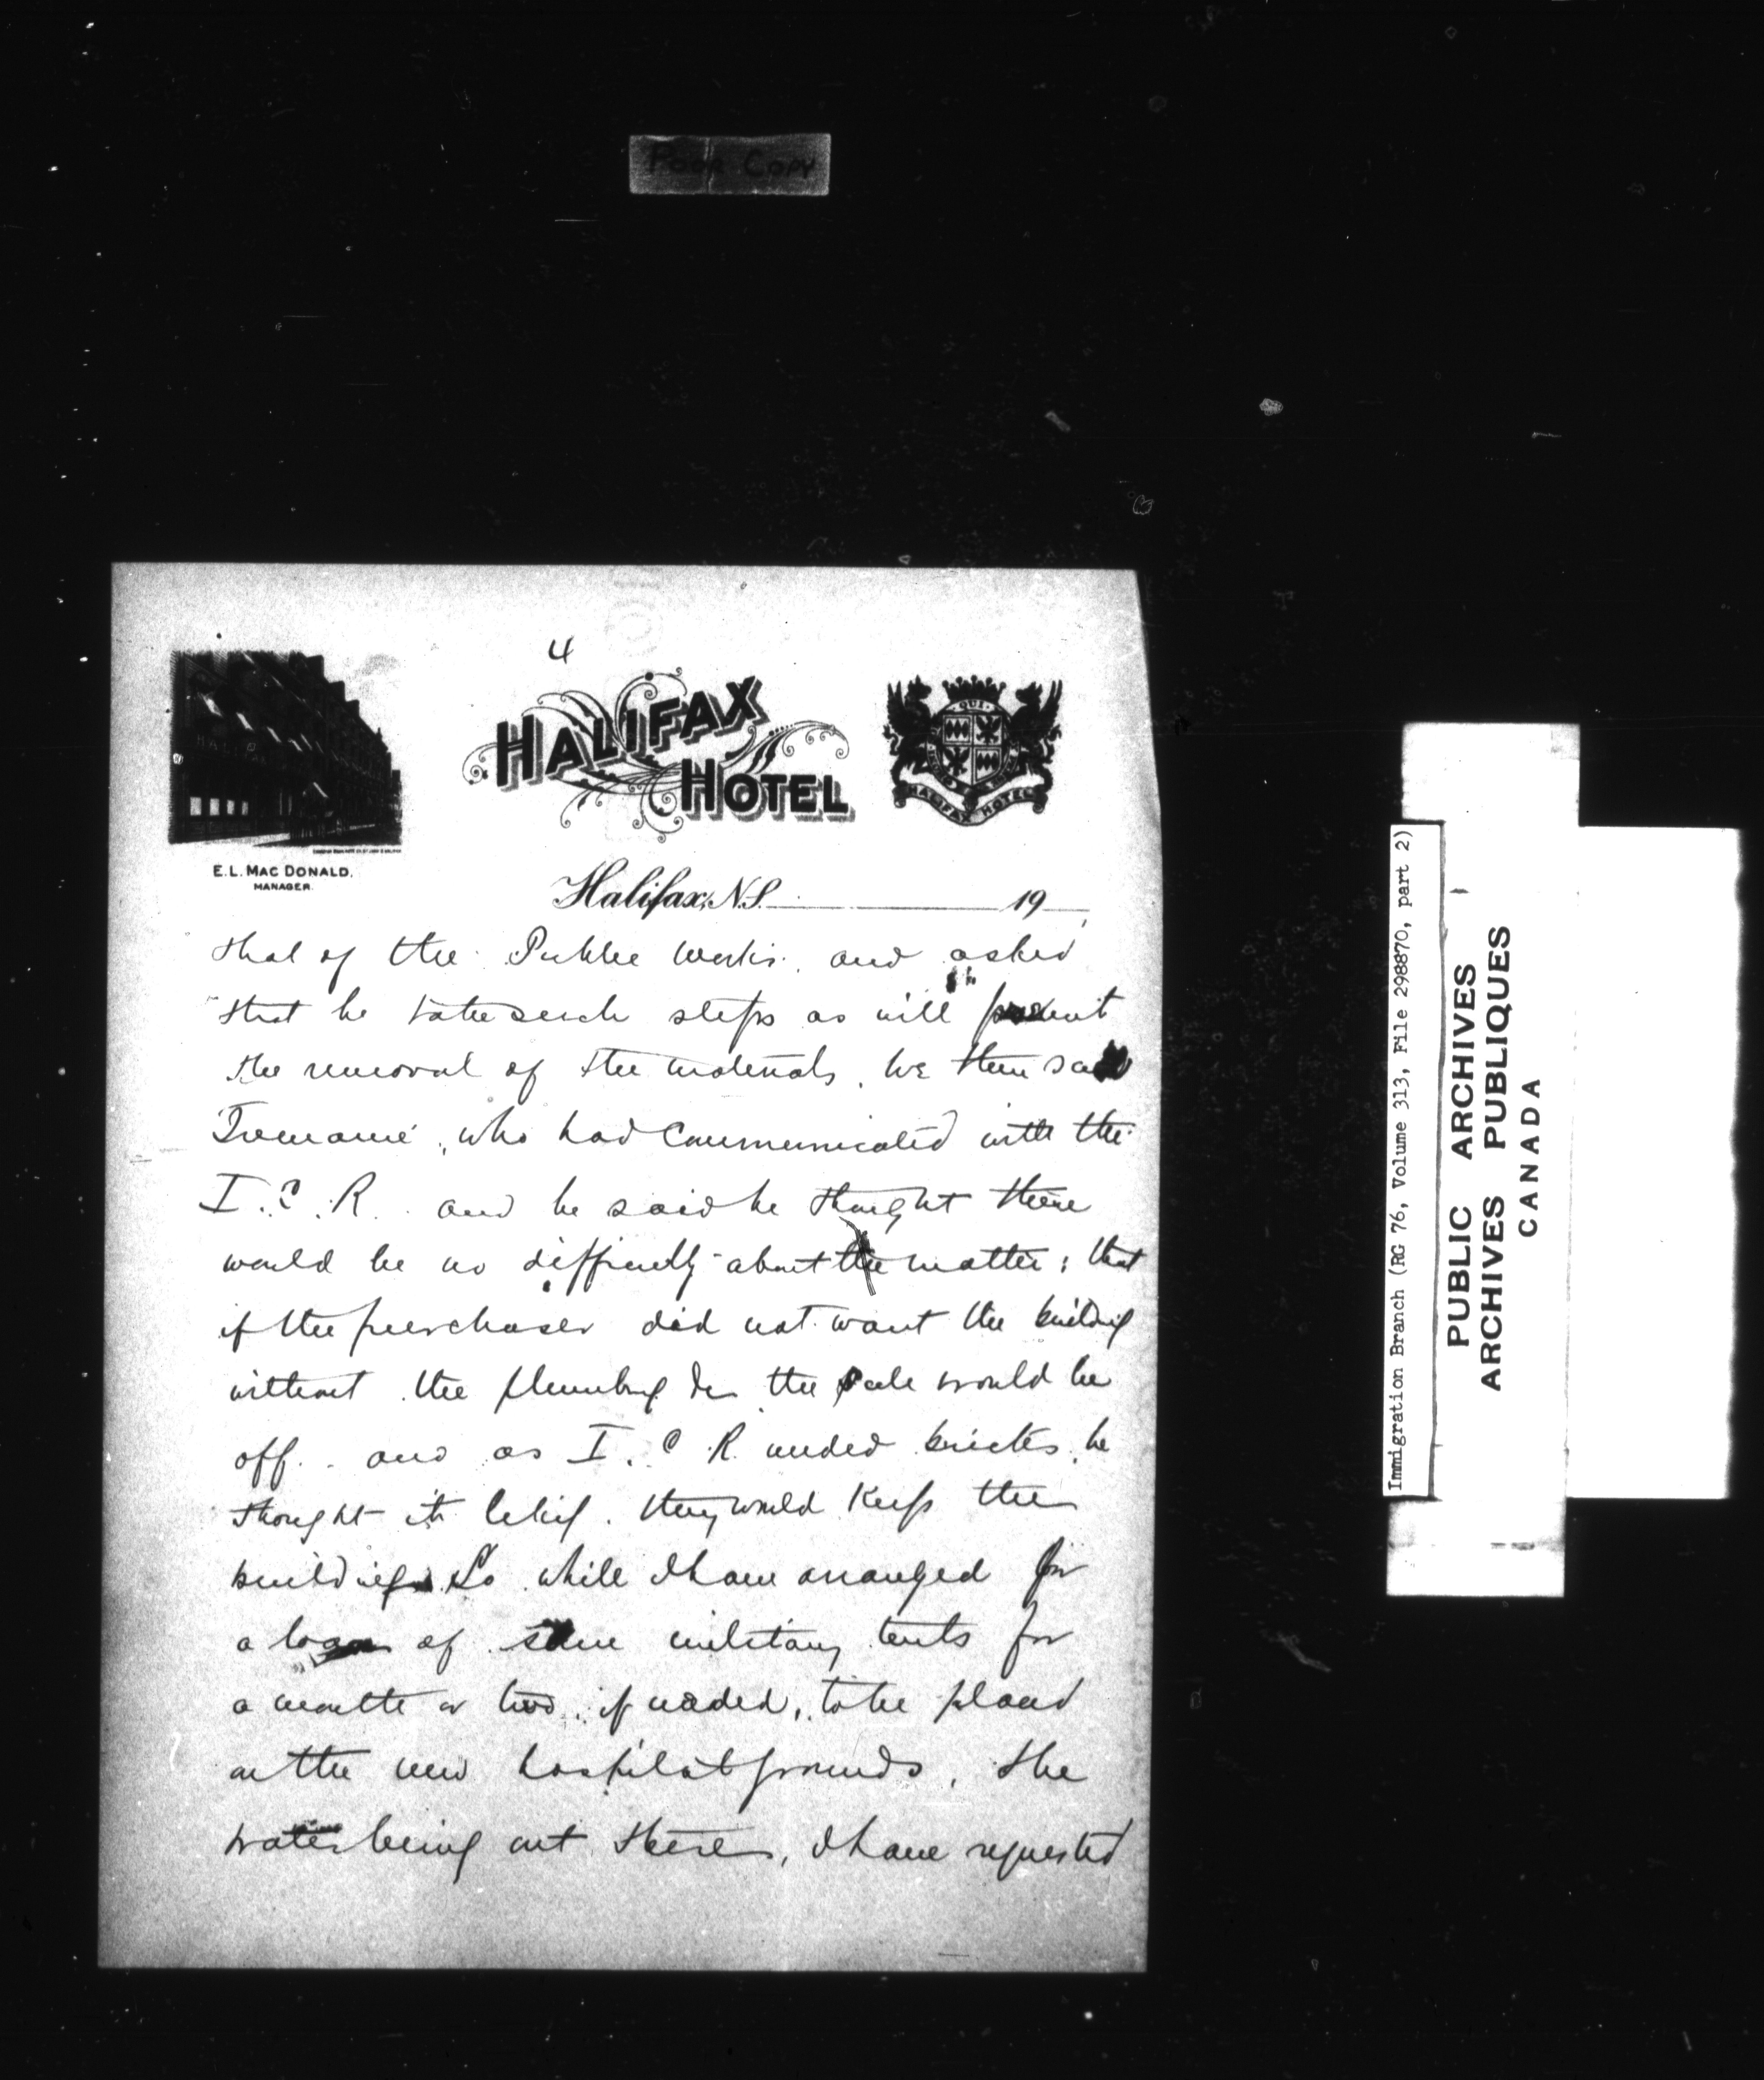 Poor Copy
4
HALIFAX
HOTEL
QUI
HALIFAX HOTEL
E.L. MAC DONALD.
MANAGER.
Halifax, N.S. 19
that of the Public Works. and asked
that he take such steps as will prevent
the removal of the materials. We then saw
who had communicated with the
I.C.R. and he said he thought there
would be no difficulty about the matter; that
if the purchaser did not want the building
without the plumbing the sale would be
off. and as I.C.R. needed bricks, he
thought it they would keep the
building. So while I have arranged for
a loan of some military tents for
a month or two, if needed, to be placed
on the new hospital grounds, the
water being out there, I have requested
Immigration Branch (RG 76, Volume 313, File 298870, part 2)
PUBLIC ARCHIVES
ARCHIVES PUBLIQUES
CANADA